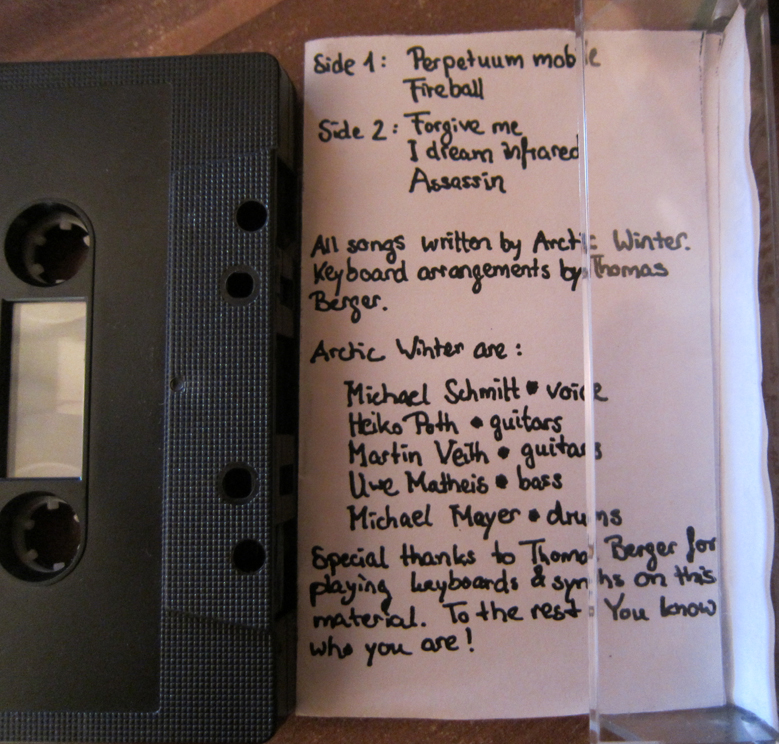 Side 1: Perpetuum mobile
Fireball
Side 2: Forgive me
I dream infrared
Assassin
All songs written by Arctic Winter.
Keyboard arrangements by Thomas
Berger.
Arctic Winter are:
Michael Schmitt • voice
Heiko Poth • guitars
Martin Veith • guitars
Uwe Matheis • bass
Michael Mayer • drums
Special thanks to Thomas Berger for
playing keyboards & synths on this
material. To the rest: You know
who you are!